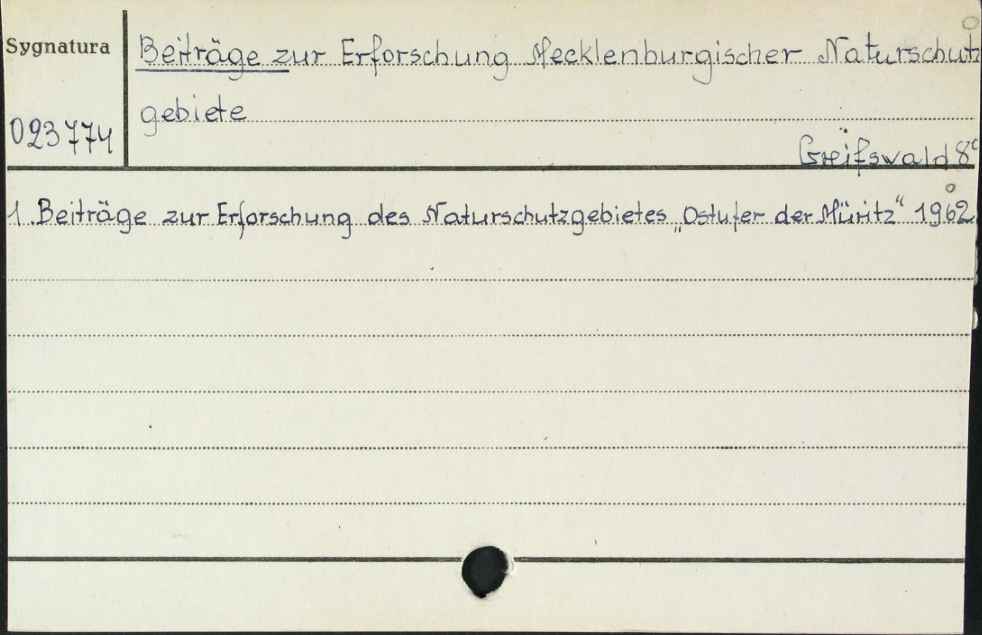 Sygnatura
Beiträge zur Erforschung Mecklenburgischer Naturschutz
gebiete
023774
Greifswald 8°
1. Beiträge zur Erforschung des Naturschutzgebietes „Ostufer der Müritz“ 1962